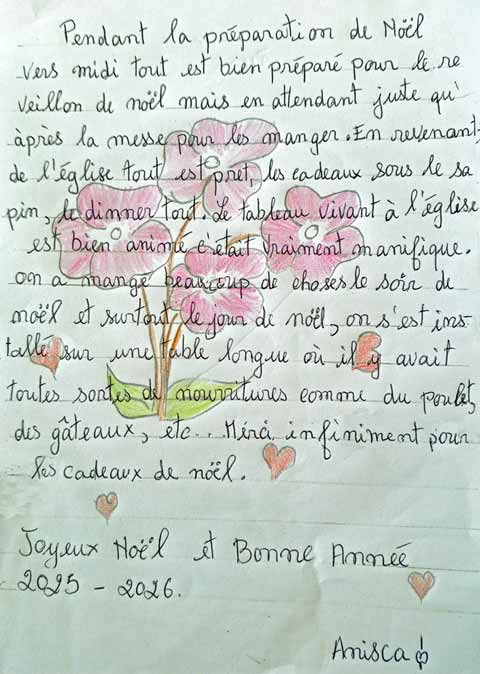 Pendant la préparation de Noël
vers midi tout est bien préparé pour le re
veillon de noël mais en attendant juste qu'
après la messe pour les manger. En revenant
de l'église tout est pret, les cadeaux sous le sa
pin, le dinner tout. Le tableau vivant à l'église
est bien animé c'était vraiment manifique.
on a mangé beaucoup de choses le soir de
noël et surtout le jour de noël, on s'est ins
tallé sur une table longue où il y avait
toutes sortes de nourritures comme du poulet,
des gâteaux, etc... Mirci infiniment pour
les cadeaux de noël.
Joyeux Noël et Bonne Année
2025 - 2026.
Anisca